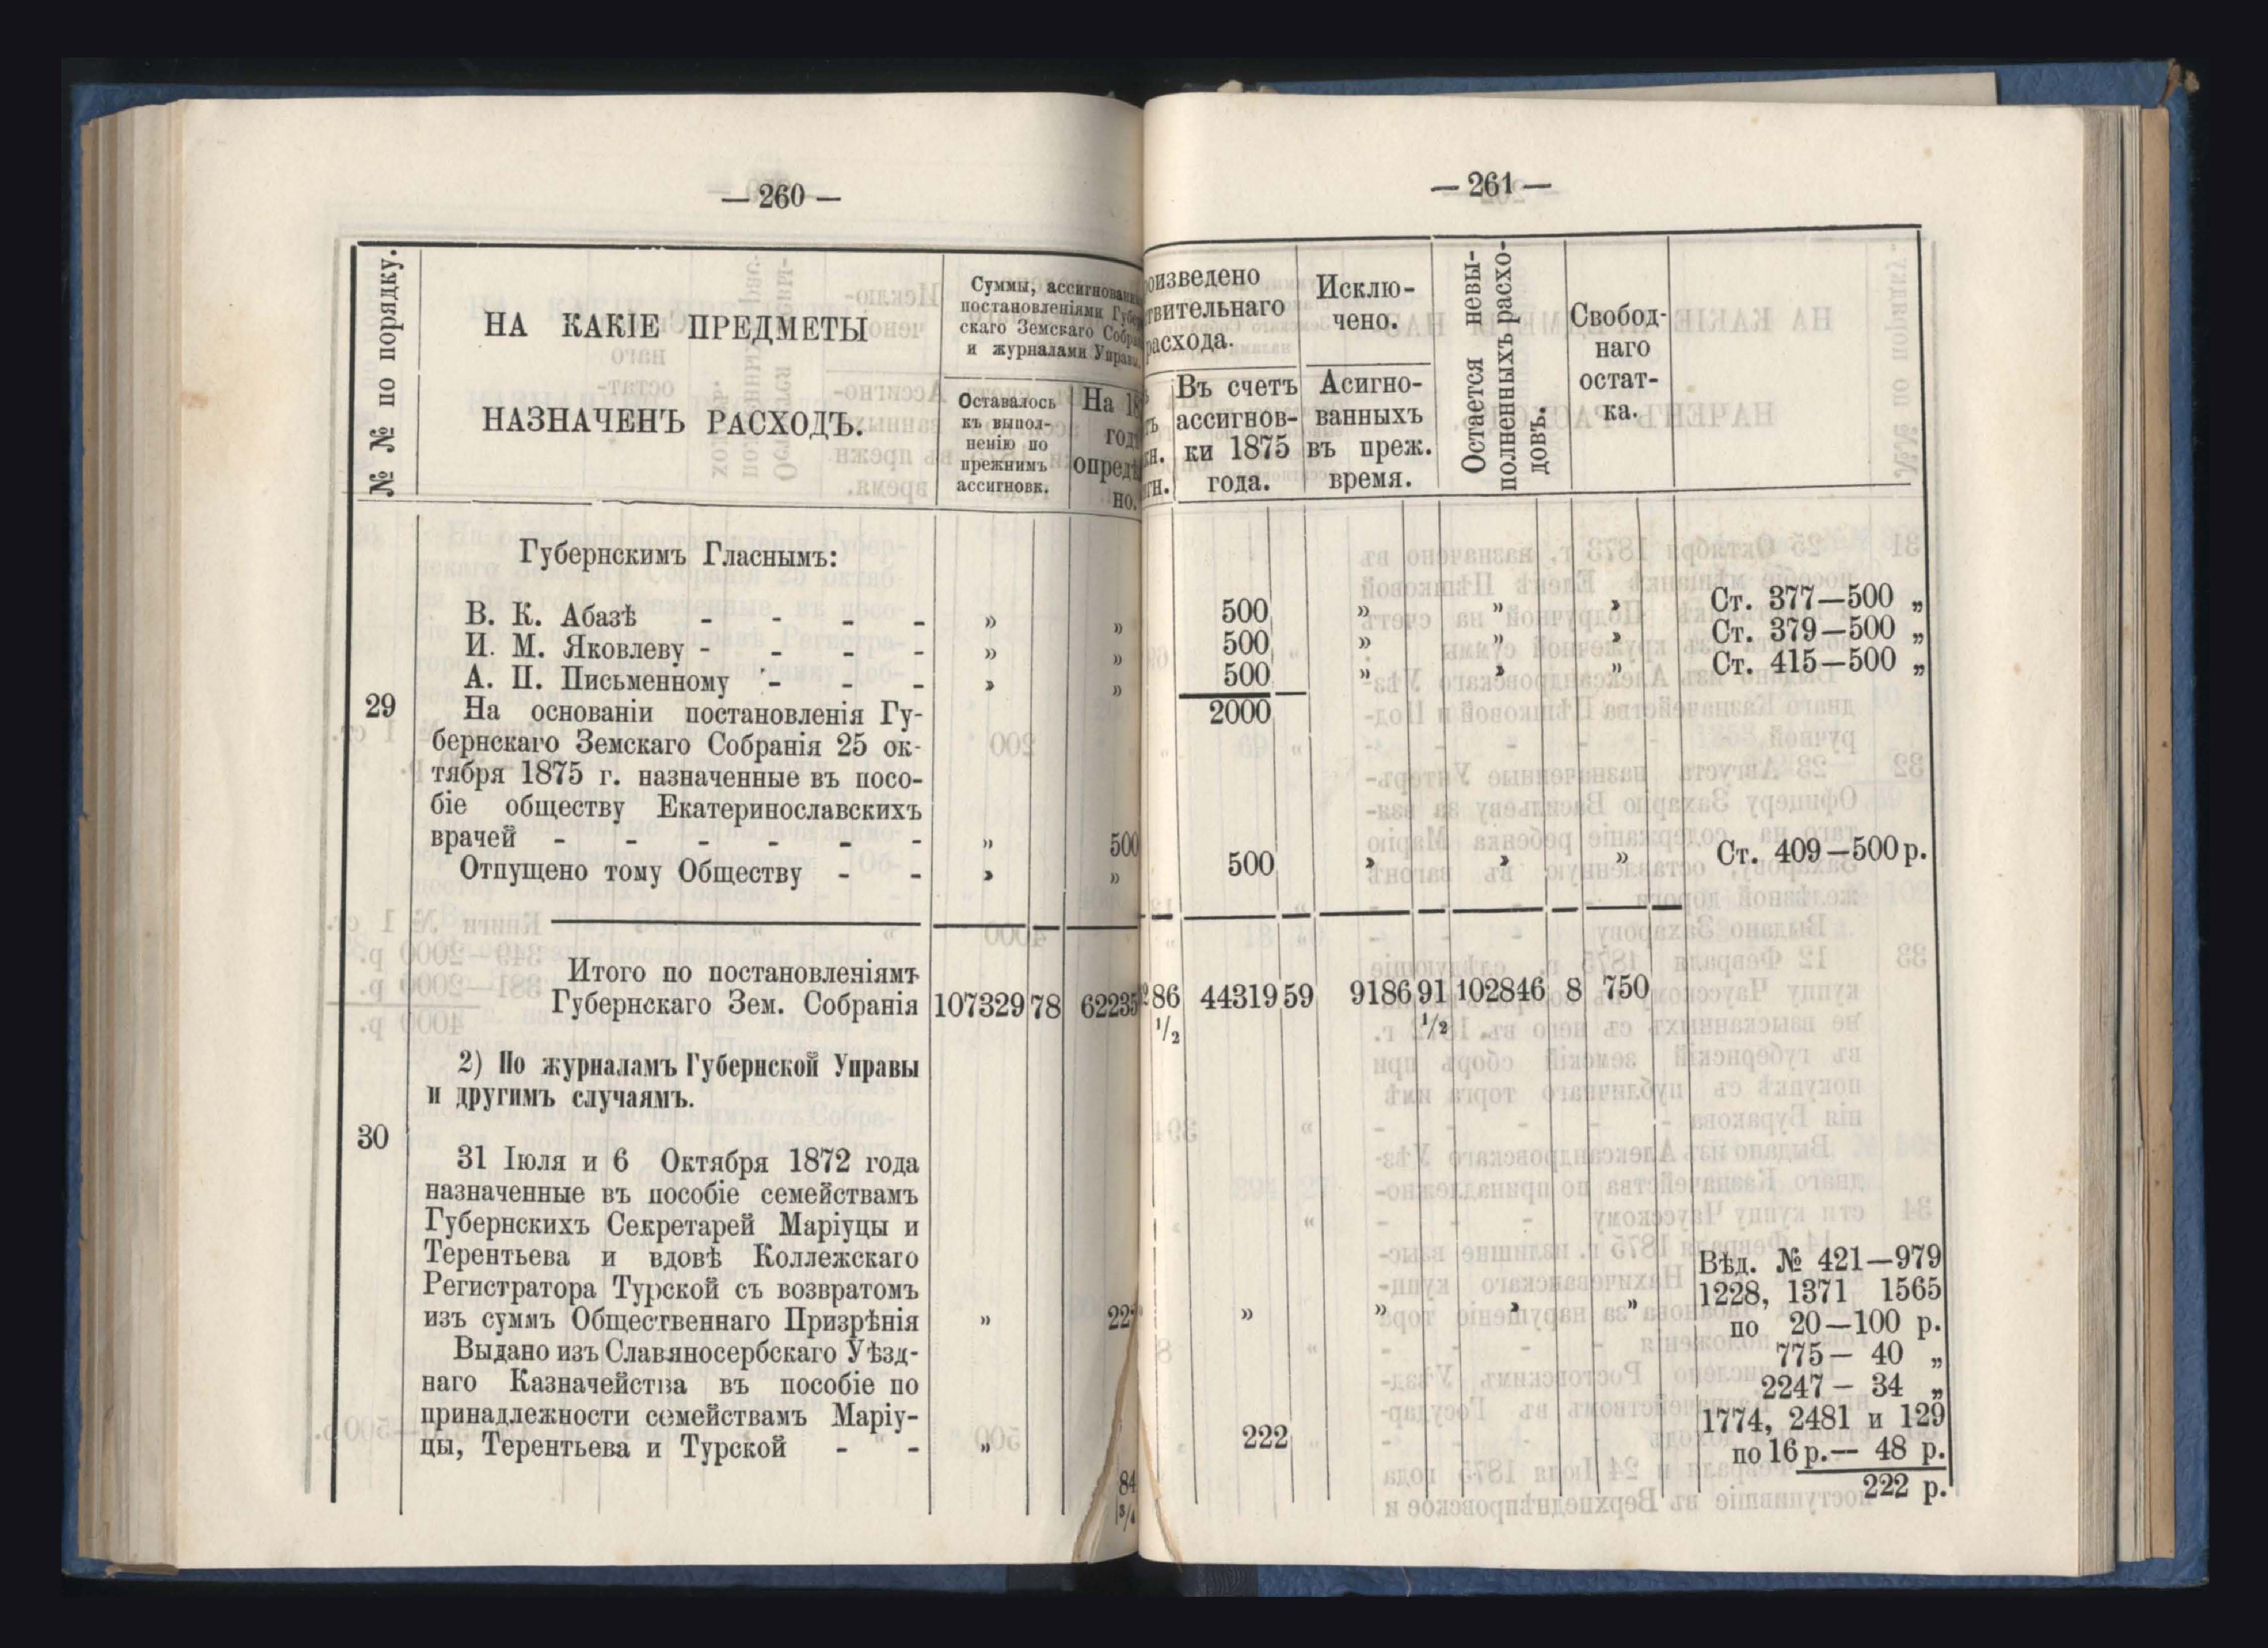 — 260 —
№ № по порядку.
НА КАКІЕ ПРЕДМЕТЫ
НАЗНАЧЕНЪ РАСХОДЪ.
Суммы,
постановленіями
скаго Земскаго
и журналами
Оставалось
къ выпол-
ненію по
прежнимъ
ассигновк.
На
но.
Губернскимъ Гласнымъ:
В. К. Абазѣ - - - - » »
И. М. Яковлеву - - - - » »
А. П. Письменному - - - » »
29 На основаніи постановленія Гу-
бернскаго Земскаго Собранія 25 ок-
тября 1875 г. назначенные въ посо-
біе обществу Екатеринославскихъ
врачей - - - - - - » 500
Отпущено тому Обществу - - » »
Итого по постановленіямъ
Губернскаго Зем. Собранія 107329 78 62235
2) По журналамъ Губернской Управы
и другимъ случаямъ.
30
31 Іюля и 6 Октября 1872 года
назначенные въ пособіе семействамъ
Губернскихъ Секретарей Маріуцы и
Терентьева и вдовѣ Коллежскаго
Регистратора Турской съ возвратомъ
изъ суммъ Общественнаго Призрѣнія »
Выдано изъ Славяносербскаго Уѣзд-
наго Казначейства въ пособіе по
принадлежности семействамъ Маріу-
цы, Терентьева и Турской - - »
84
3/4
— 261 —
расхода.
Въ счетъ
ассигнов-
ки 1875
года.
Исклю-
чено.
Асигно-
ванныхъ
въ преж.
время.
Остается невы-
полненныхъ расхо-
довъ.
Свобод-
наго
остат-
ка.
500 » » » Ст. 377—500 „
500 » » » Ст. 379—500 „
500 » » » Ст. 415—500 „
2000
500 » » » Ст. 409—500 р.
86 44319 59 9186 91 102846 8 750
1/2 1/2
Вѣд. № 421—979
1228, 1371 1565
» » » » по 20—100 р.
775— 40 „
2247— 34 „
1774, 2481 и 129
222 по 16 р.— 48 р.
222 р.